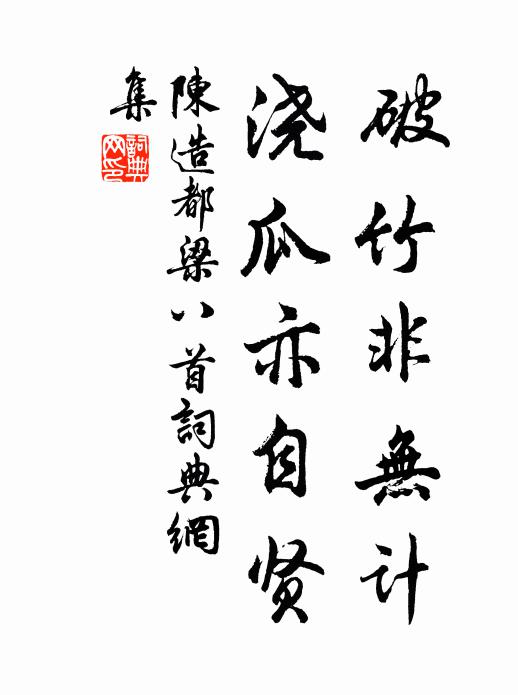 破竹非無計
浇瓜亦自贤
陳造都梁八首詞典網
集
詞典
网印